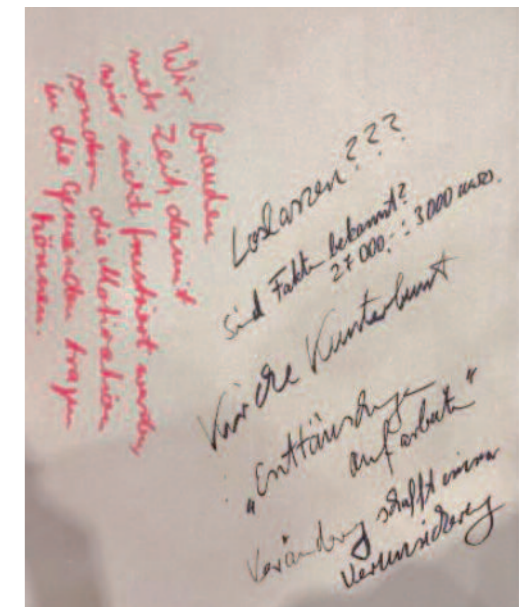 Wir brauchen
mehr Zeit, damit
wir nicht frustriert werden,
sondern die Motivation
in die Gemeinden tragen
können.
Loslassen???
Sind Fakten bekannt?
27 000,- : 3 000
Kirche Kunterbunt
"Enttäuschungen
aufarbeiten"
Veränderung schafft immer
Verunsicherung